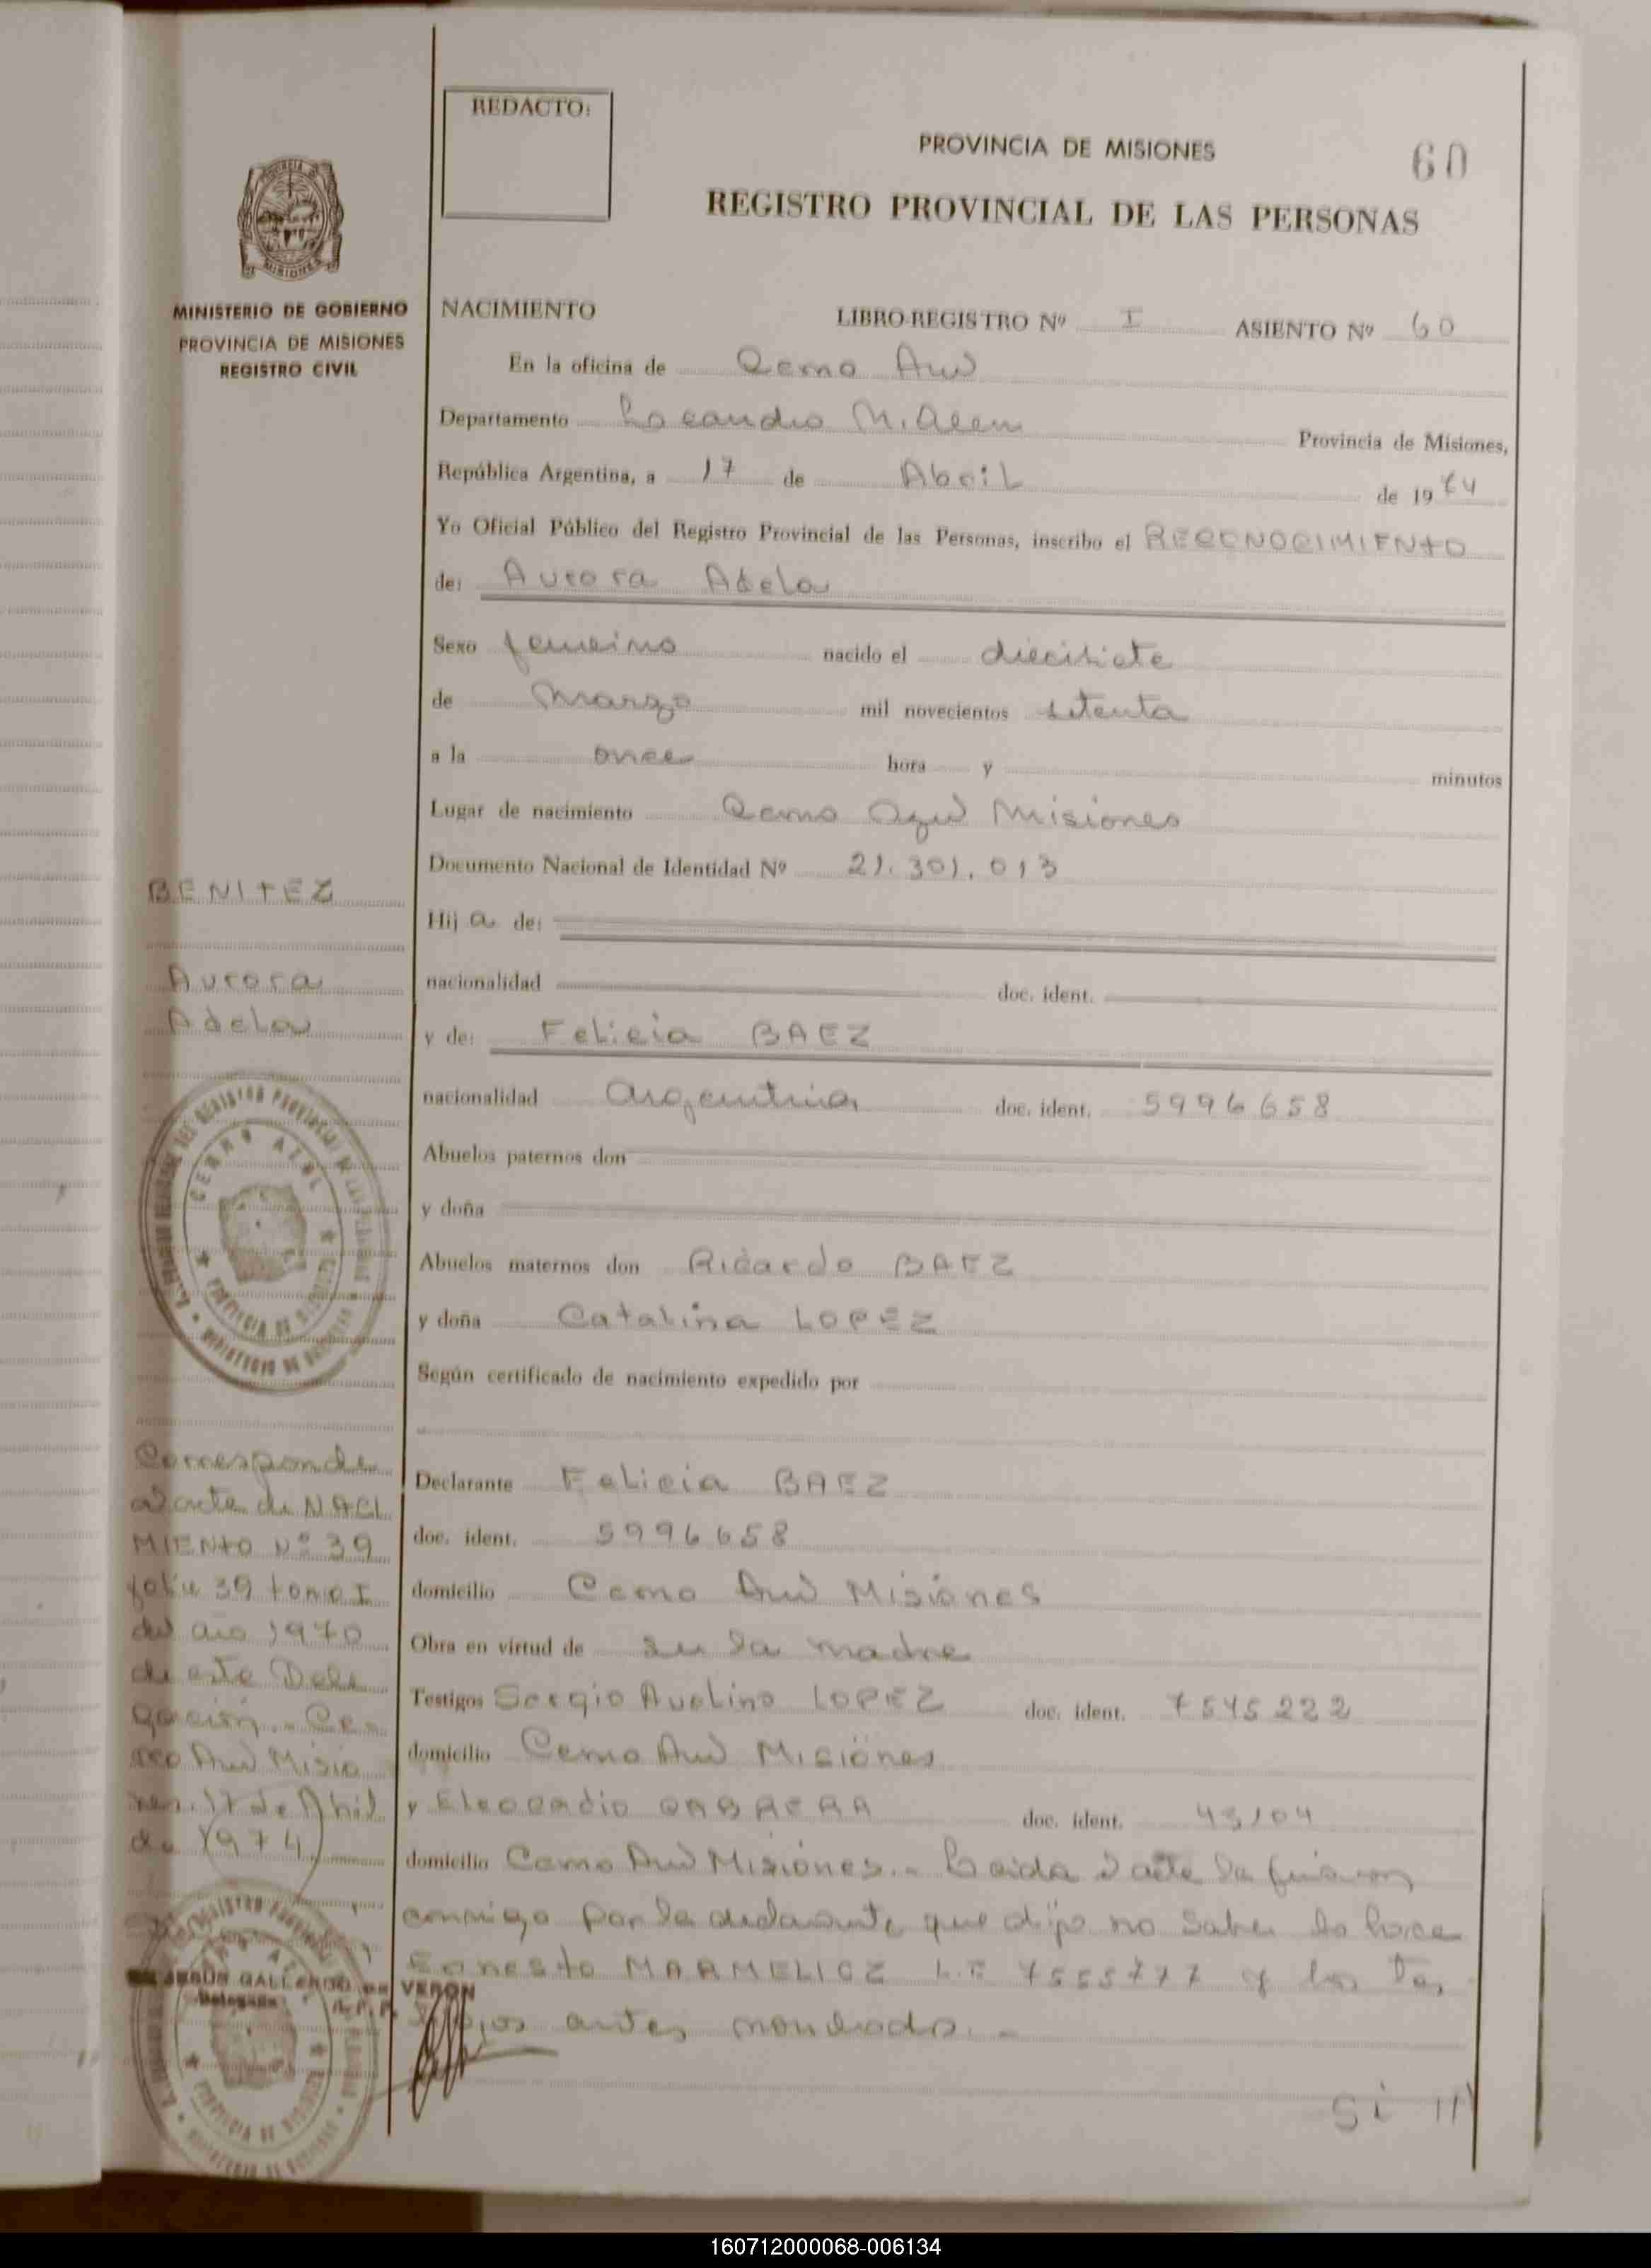 REDACTO:
PROVINCIA DE MISIONES
60
REGISTRO PROVINCIAL DE LAS PERSONAS
PROVINCIA
MISIONES
MINISTERIO DE GOBIERNO
PROVINCIA DE MISIONES
REGISTRO CIVIL
NACIMIENTO LIBRO-REGISTRO Nº I ASIENTO Nº 60
En la oficina de Cerro Azul
Departamento Leandro N. Alem Provincia de Misiones,
República Argentina, a 17 de Abril de 1974
Yo Oficial Público del Registro Provincial de las Personas, inscribo el RECONOCIMIENTO
de: Aurora Adela
Sexo femenino nacido el diecisiete
de Marzo mil novecientos setenta
a la once hora y minutos
Lugar de nacimiento Cerro Azul Misiones
Documento Nacional de Identidad Nº 21.301.013
BENITEZ
Aurora
Adela
Hij a de:
nacionalidad doc. ident.
y de: Felicia BAEZ
nacionalidad Argentina doc. ident. 5996658
Abuelos paternos don
y doña
Abuelos maternos don Ricardo BAEZ
y doña Catalina LOPEZ
Según certificado de nacimiento expedido por
CERRO AZUL
PROVINCIA DE MISIONES
Declarante Felicia BAEZ
doc. ident. 5996658
domicilio Cerro Azul Misiones
Obra en virtud de ser la madre
Testigos Sergio Avelino LOPEZ doc. ident. 7545222
domicilio Cerro Azul Misiones
y Eleocadio CABRERA doc. ident. 43104
domicilio Cerro Azul Misiones.- Leida el acta la firman
conmigo por la declarante que dijo no saber lo hace
Ernesto MARMELICZ L.E 7555777 y los Tes
tigos antes nombrados.-
Corresponde
al acta de NACI
MIENTO Nº 39
folio 39 tomo I
del año 1970
de esta Dele
gación.- Ce
rro Azul Misio
nes, 17 de Abril
de 1974
JESUS GALLARDO DE VERON
Delegada R.P.P.
Si ///
160712000068-006134